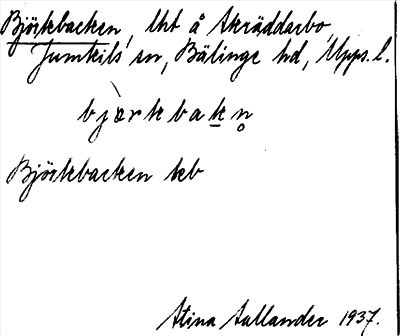 Björkbacken, lht å Skräddarbo,
Jumkils sn, Bälinge hd, Upps. l.
bjòrkbakn̥
Björkbacken kb
Stina Sallander 1937.